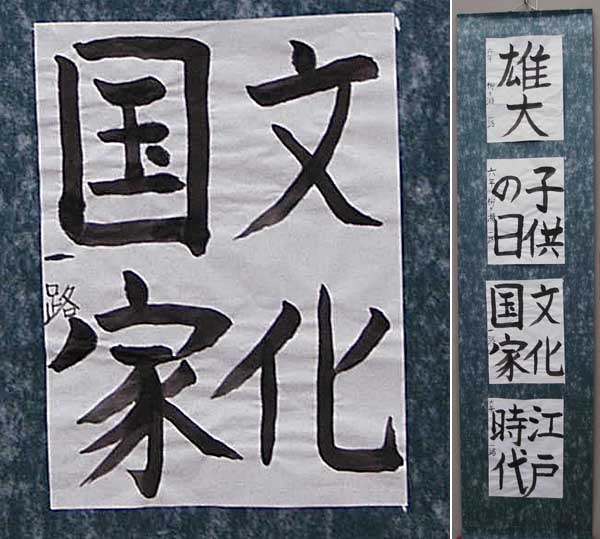 文化
国家
一路
雄大
子供
の日
文化
国家
江戸
時代